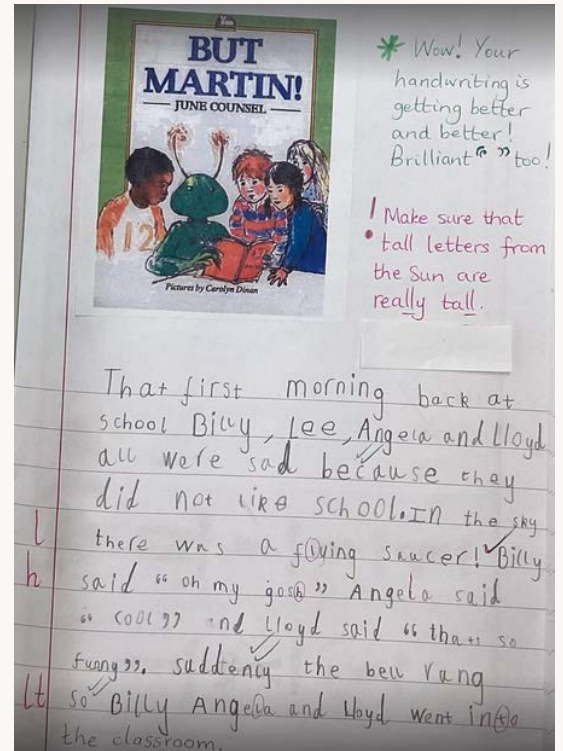 BUT
MARTIN!
JUNE COUNSEL
12
Pictures by Carolyn Dinan
* Wow! Your
handwriting is
getting better
and better!
Brilliant “ ” too!
! Make sure that
tall letters from
the Sun are
really tall.
That first morning back at
school Billy, Lee, Angela and Lloyd
all were sad because they
did not like school. In the sky
l there was a flying saucer! Billy
h said “ oh my gosh ” Angela said
“ cool ” and Lloyd said “ thats so
funny ”. suddtenly the bell rang
lt so Billy Angela and Lloyd went into
the classroom.